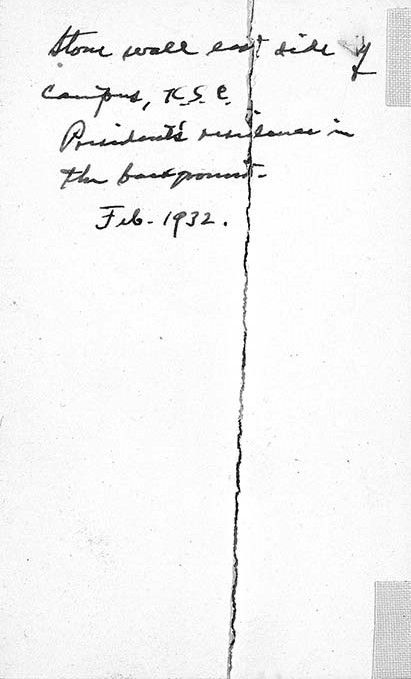 Stone wall east side of
Campus, K.S.C.
President's residence in
the background-
Feb- 1932.